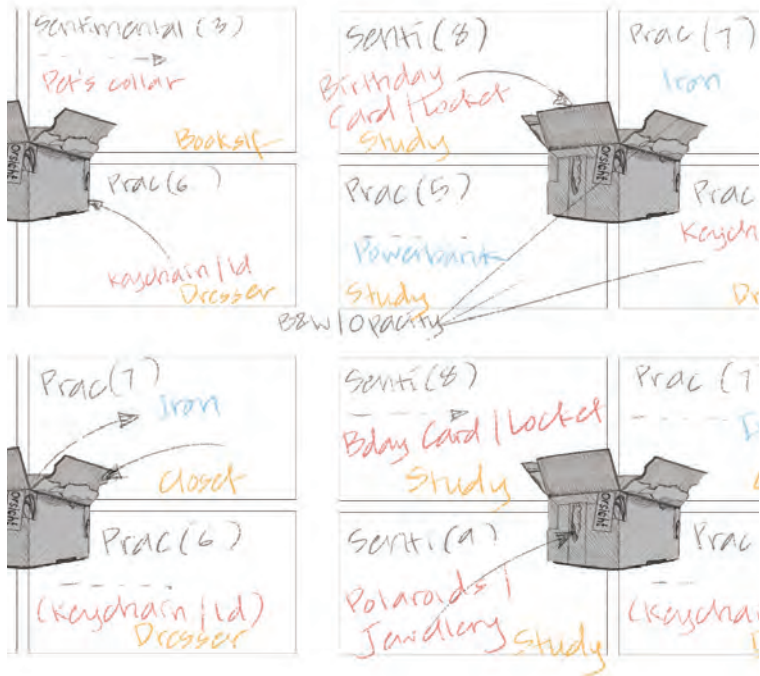 Sentimental (3)
Pet's collar
Bookslf
Prac (6)
Keychain / Id
Dresser
Senti (8)
Birthday
Card / Locket
Study
Prac (7)
Iron
Prac (5)
Powerbank
Study
Prac
Keycha
Dr
B&W / Opacity
Prac (7)
Iron
Closet
Prac (6)
(Keychain / Id)
Dresser
Senti (8)
Bday Card / Locket
Study
Prac (7
Senti (9)
Polaroids /
Jewellery
Study
Prac
(Keychai